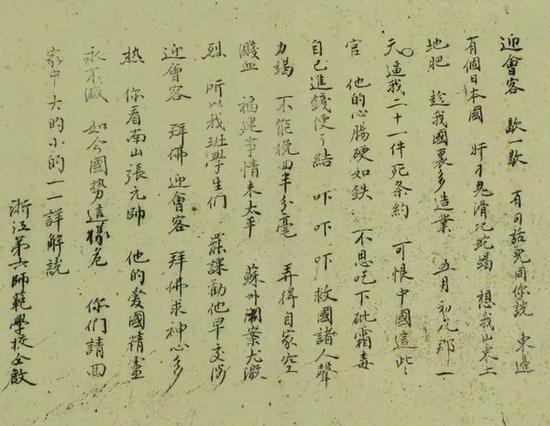 迎會客 歇一歇 有句話兒同你說 東邊
有個日本國 奸刁鬼滑比蛇蝎 想我山東土
地肥 趁我國裏多造業 五月初七那一
天 逼我二十一件死条約 可恨中國這些
官 他的心腸硬如鉄 不思吃下砒霜毒
自己進錢便了結 吓 吓 吓 救國諸人聲
力竭 不能挽回半分毫 弄得自家空
濺血 福建事情未太平 蘇州案尤激
烈 所以我班學生們 罷課勸他早交涉
迎會客 拜佛迎會客 拜佛求神心多
热 你看南山張元帥 他的爱國精靈
永不滅 如今國勢這樣危 你們請回
家中大的小的一一詳解說
浙江第六師範學校仝啟